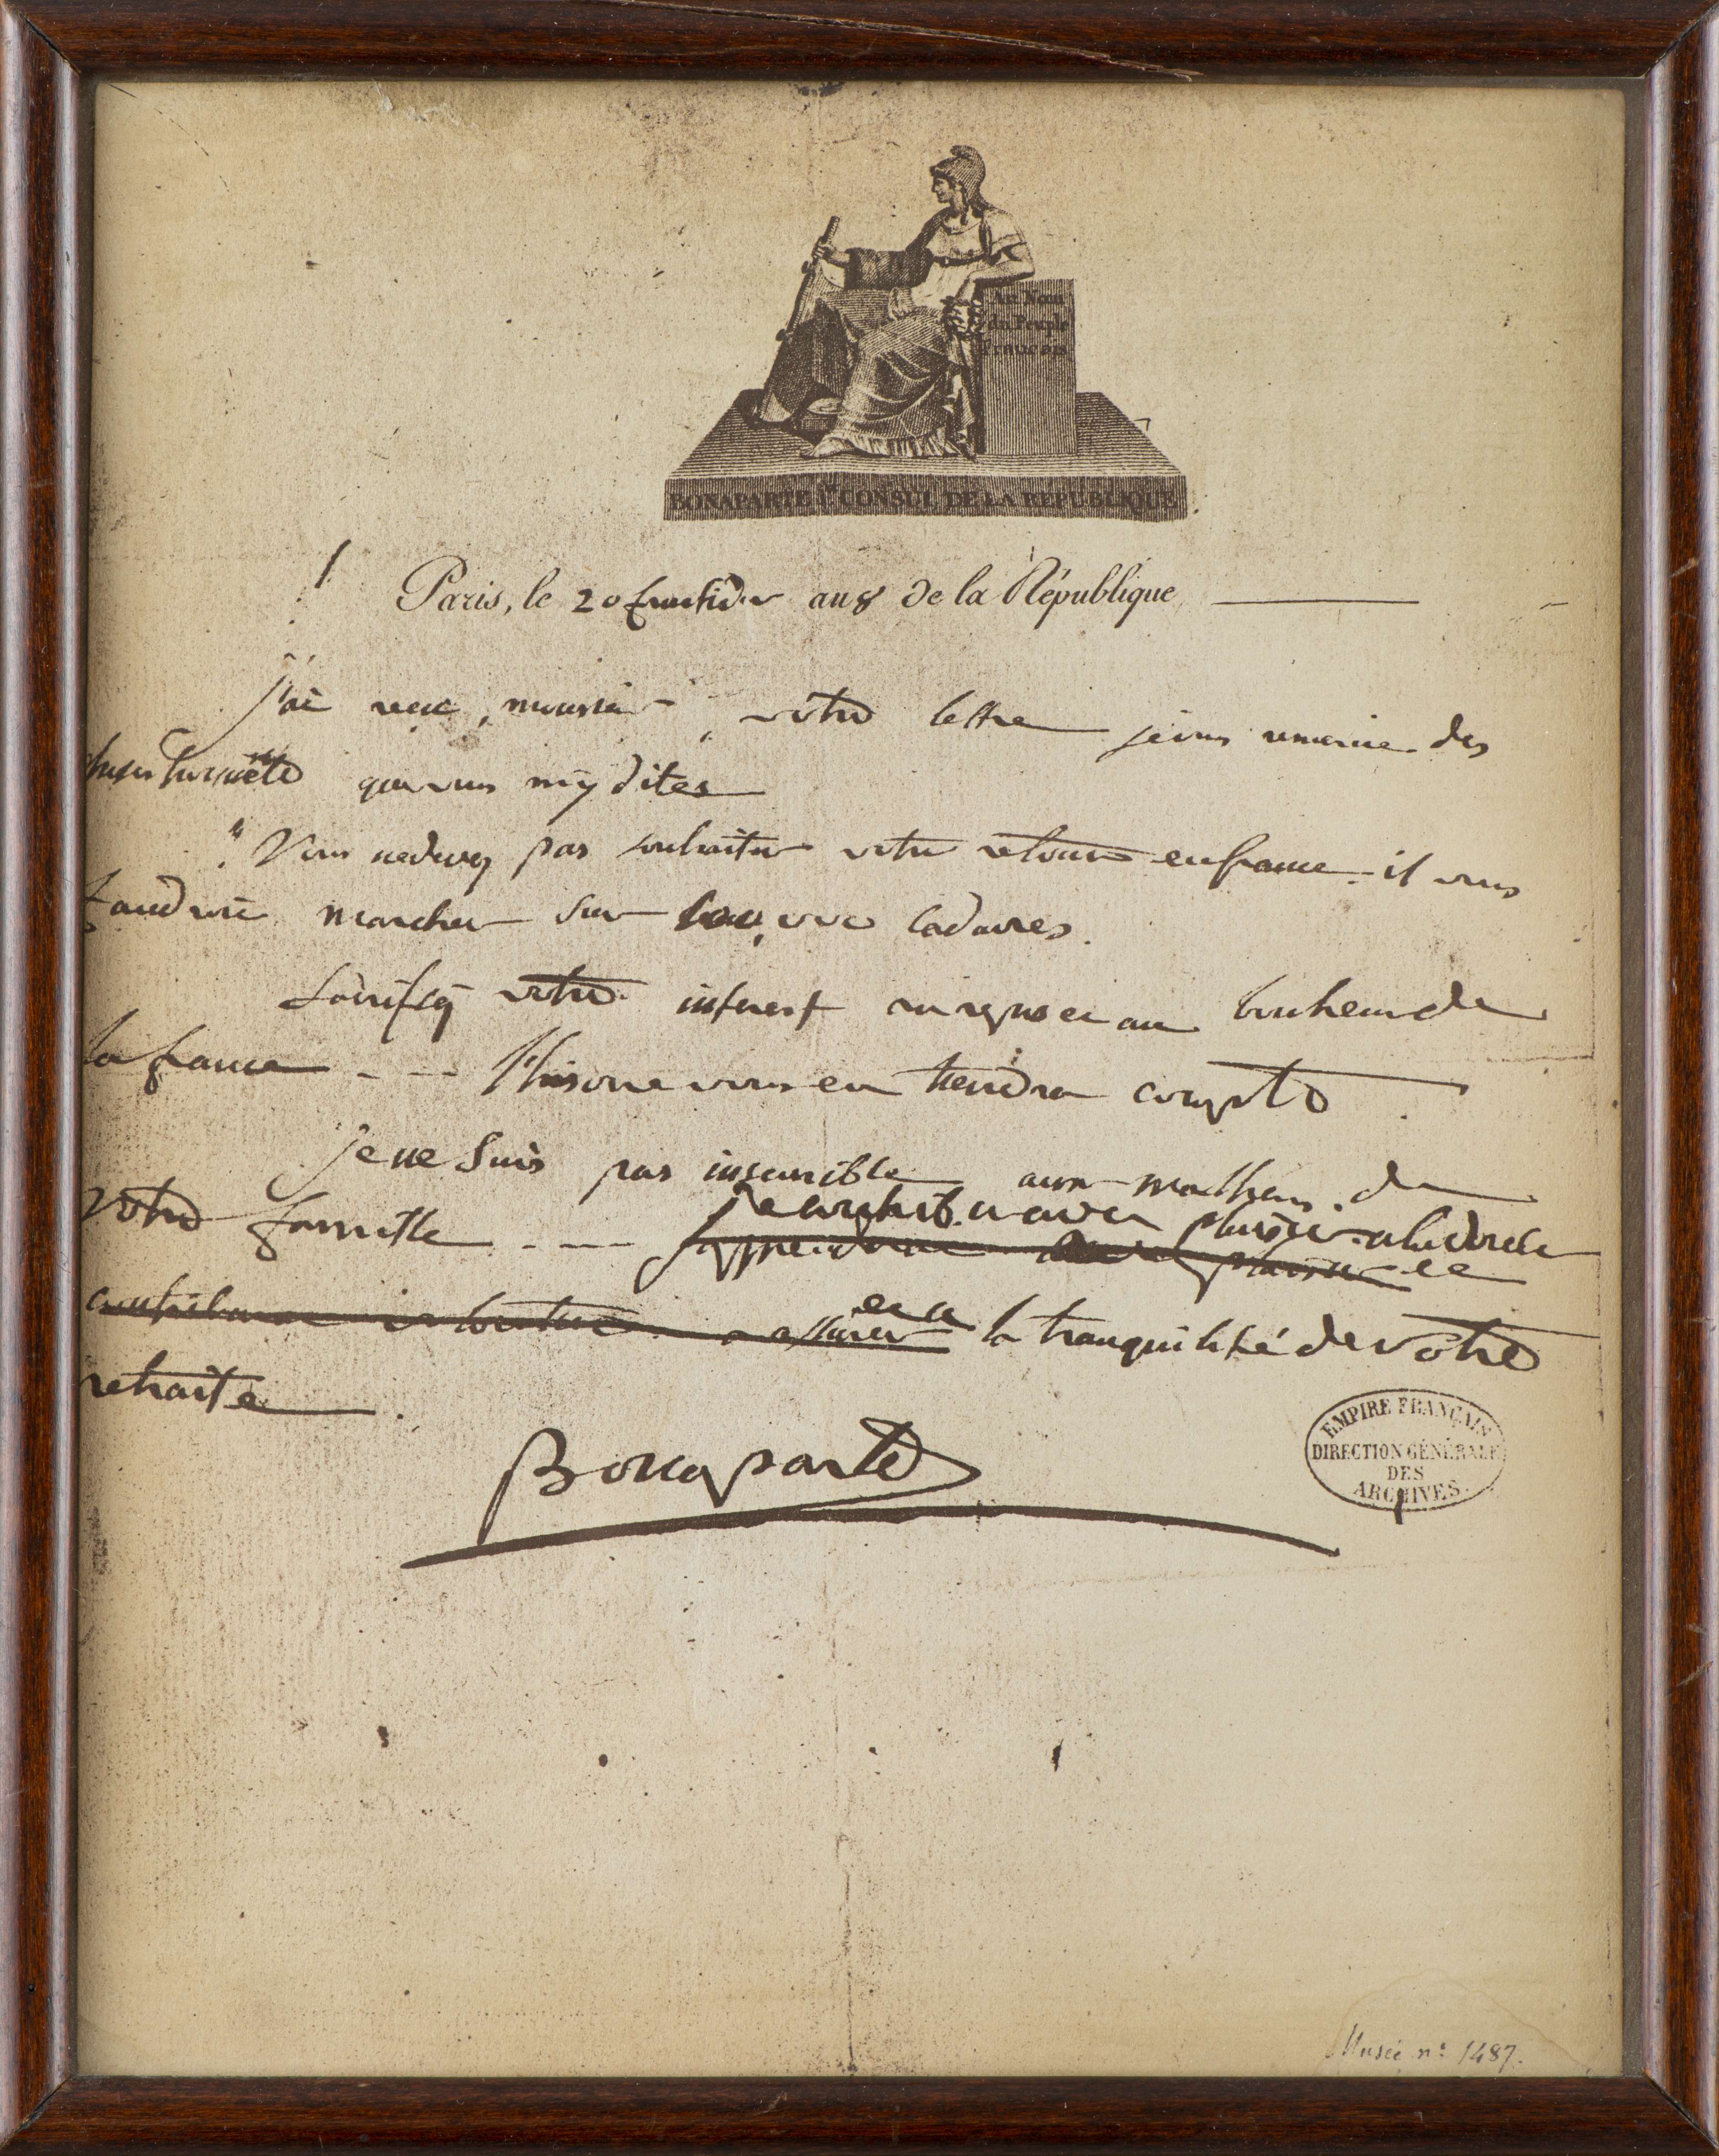 Au Nom
du Peuple
Français
BONAPARTE 1er CONSUL DE LA REPUBLIQUE
Paris, le 20 fructidor an 8 de la République
j'ai reçu, monsieur, votre lettre je vous remercie des
choses honnêtes que vous m'y dites
Vous ne devez pas souhaiter votre retour en france il vous
faudroit marcher sur 100,000 cadavres.
Sacrifiez votre interest au repos et au bonheur de
la france --- l'histoire vous en tiendra compte
je ne suis pas insensible aux malheurs de
votre famille --- je contribuerai avec plaisir a la douceur
plaisir
contribuerai assurer et a la tranquilité de votre
retraite.
Bonaparte
EMPIRE FRANÇAIS
DIRECTION GÉNÉRALE
DES
ARCHIVES.
Musée n° 1487.